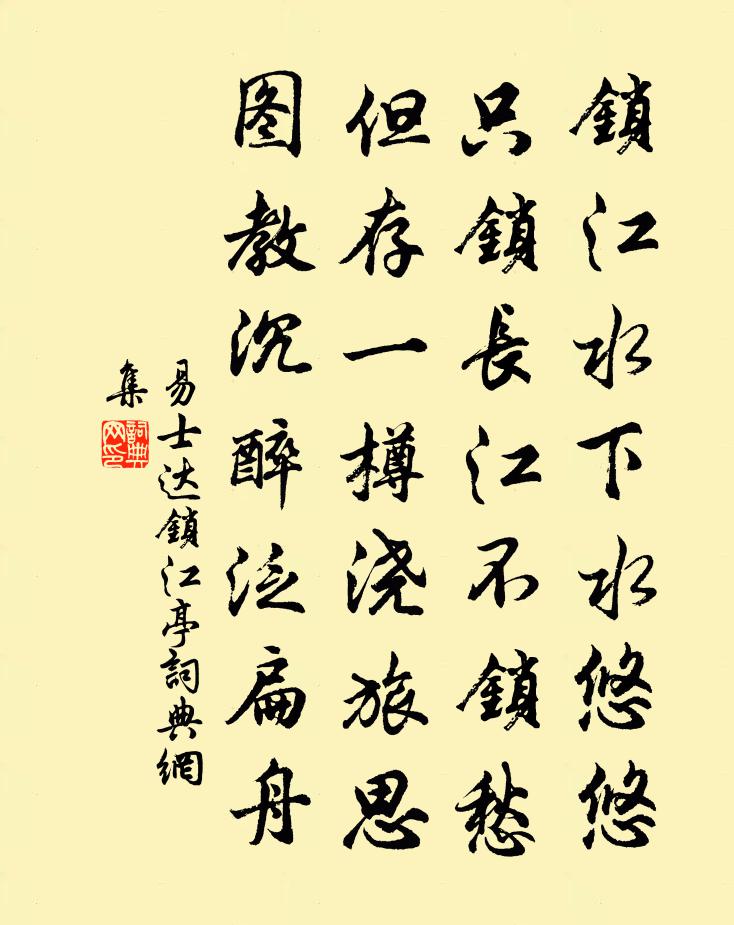 鎖江水下水悠悠
只鎖長江不鎖愁
但存一樽浇旅思
图教沉醉泛扁舟
易士达鎖江亭詞典網
集
詞典
网印